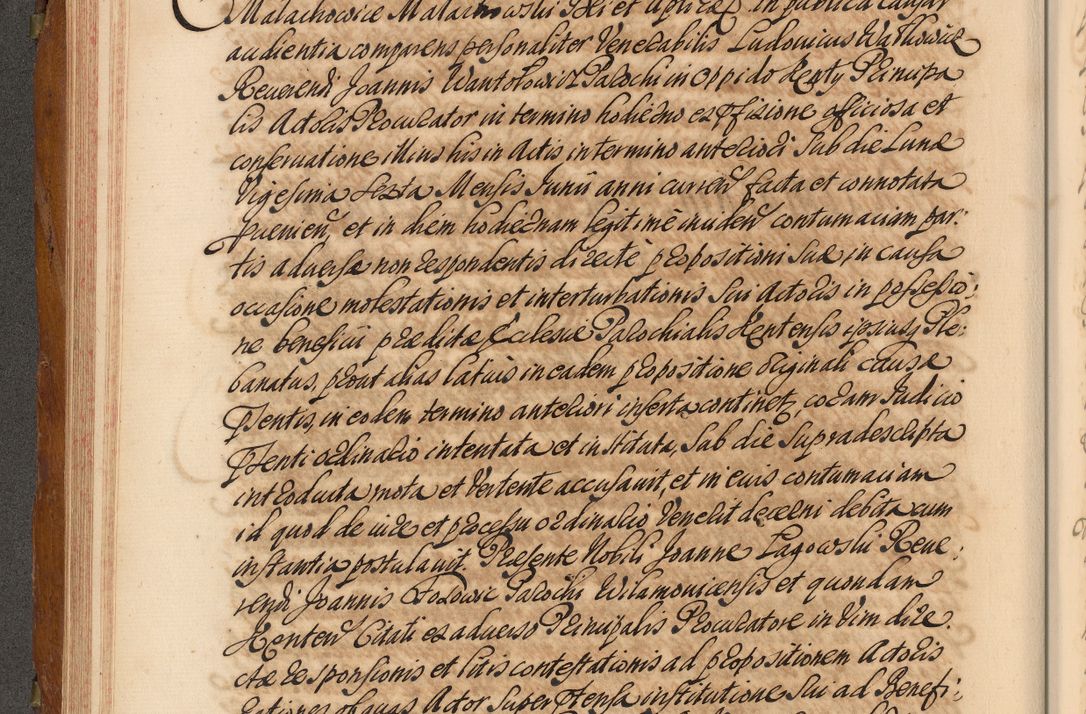 Malachowice Malachowski Dei et Aplicæ in publica causar
audientia comparens personaliter Venerabilis Ludovicus Wathowicz
Reverendi Joannis Wantołowicz Parochi in oppido Kenty Principa
lis Actoris Procurator in termino hodierno ex pfixione officiosa et
conservatione illius his in Actis in termino anteriori Sub die Lunæ
Vigesima Sexta Mensis Junii anni curren facta et connotata
pvenien, et in diem hodiernam legitimè inciden contumaciam par:
tis adversæ non respondentis directè propositioni suæ, in causa
occasione molestationis et interturbationis sui Actoris in possessio:
ne beneficii præditæ Ecclesiæ Parochialis Kentensis ipsiusq Ple:
banatus, prout alias latius in eadem propositione originali causæ
pntis, in eodem termino anteriori inserta continet, coram Judicio
pnti ordinario intentata et instituta, Sub die Supradescripta
introducta, mota et Vertente accusavit, et in eius contumaciam
id quod de iure et processu ordinario Venerit decerni debita cum
instantia postulavit. Præsente Nobili Joanne Łagowski Reve:
rendi Joannis Parochi Wilamovicensis et quondam
Kenten Citati ex adverso Principalis Procuratore in Vim dire
ctæ responsionis et litis contestationis ad propositionem Actoris
Actor Super ptensa institutione Sui ad Benefi: